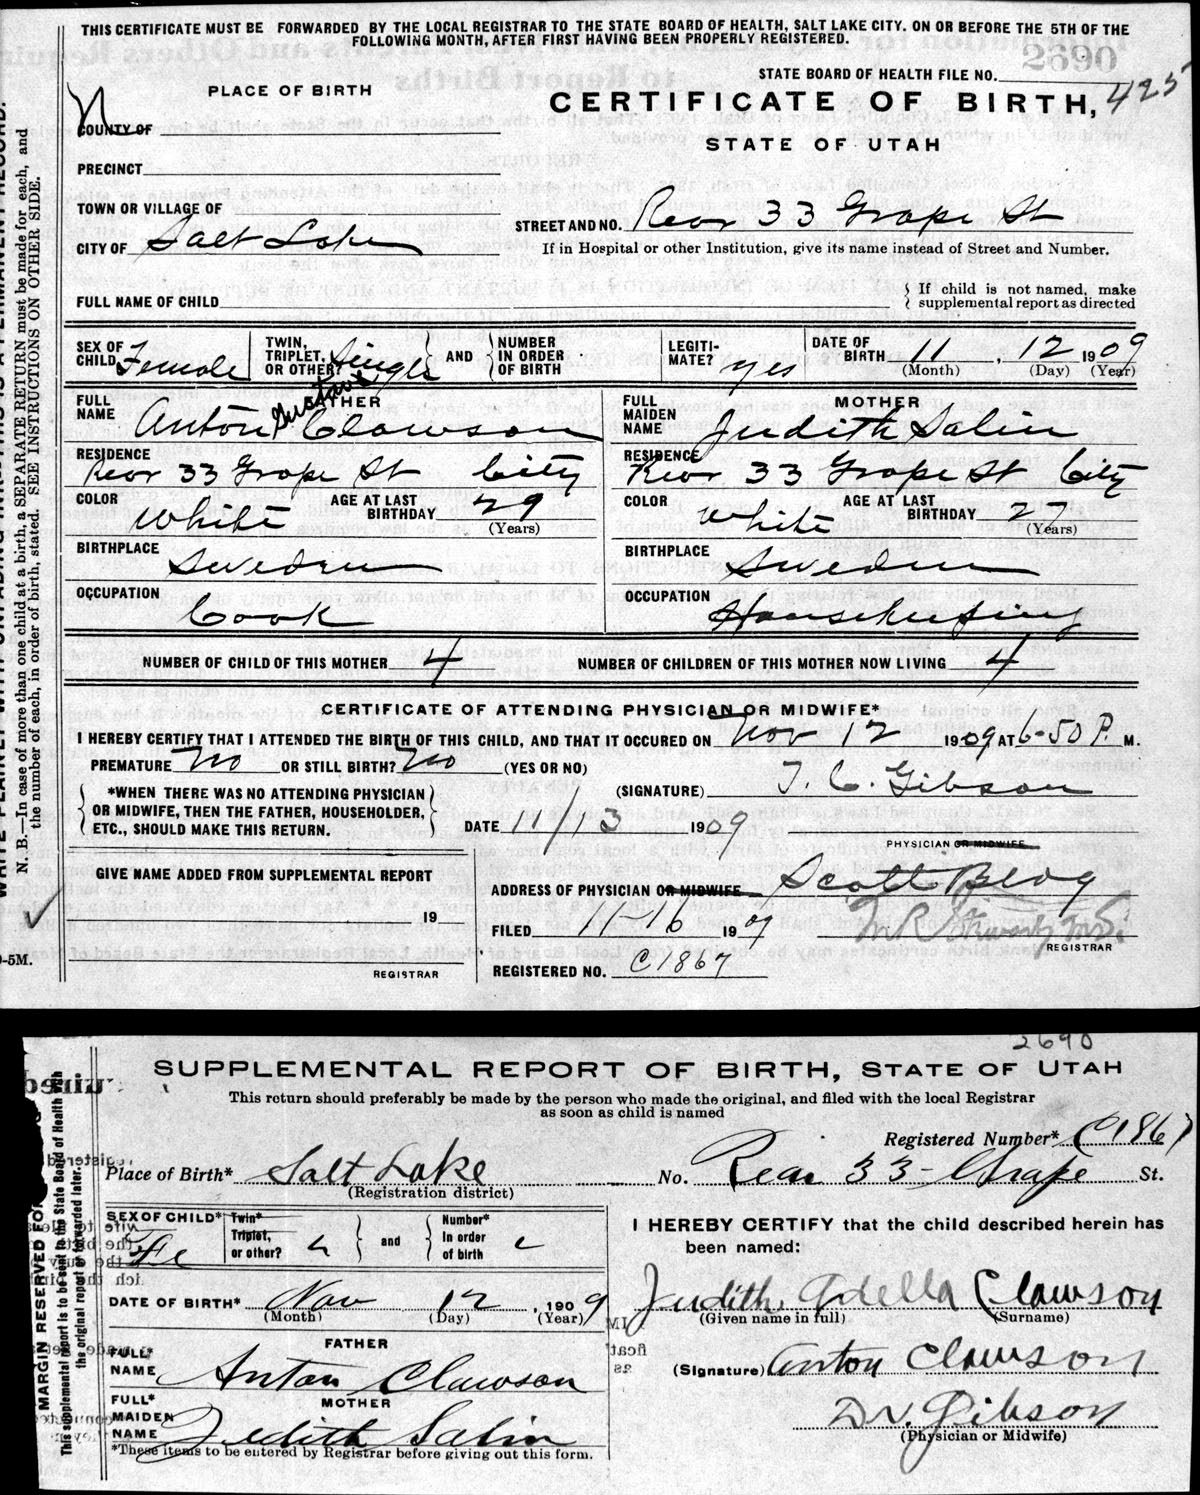 THIS CERTIFICATE MUST BE FORWARDED BY THE LOCAL REGISTRAR TO THE STATE BOARD OF HEALTH, SALT LAKE CITY. ON OR BEFORE THE 5TH OF THE
FOLLOWING MONTH, AFTER FIRST HAVING BEEN PROPERLY REGISTERED.
2690
STATE BOARD OF HEALTH FILE NO.
425
PLACE OF BIRTH
CERTIFICATE OF BIRTH,
STATE OF UTAH
COUNTY OF
PRECINCT
TOWN OR VILLAGE OF
CITY OF Salt Lake
STREET AND NO. Rear 33 Grape St
If in Hospital or other Institution, give its name instead of Street and Number.
FULL NAME OF CHILD
If child is not named, make
supplemental report as directed
SEX OF CHILD Female
TWIN, TRIPLET, OR OTHER? Single AND NUMBER IN ORDER OF BIRTH
LEGITIMATE? yes
DATE OF BIRTH 11, 12 1909
(Month) (Day) (Year)
FATHER
FULL NAME Anton Gustave Clawson
RESIDENCE Rear 33 Grape St City
COLOR White AGE AT LAST BIRTHDAY 29
(Years)
BIRTHPLACE Sweden
OCCUPATION Cook
MOTHER
FULL MAIDEN NAME Judith Salin
RESIDENCE Rear 33 Grape St City
COLOR White AGE AT LAST BIRTHDAY 27
(Years)
BIRTHPLACE Sweden
OCCUPATION Housekeeping
NUMBER OF CHILD OF THIS MOTHER 4 NUMBER OF CHILDREN OF THIS MOTHER NOW LIVING 4
CERTIFICATE OF ATTENDING PHYSICIAN OR MIDWIFE*
I HEREBY CERTIFY THAT I ATTENDED THE BIRTH OF THIS CHILD, AND THAT IT OCCURED ON Nov 12 1909 AT 6-50 P. M.
PREMATURE No OR STILL BIRTH? No (YES OR NO)
*WHEN THERE WAS NO ATTENDING PHYSICIAN
OR MIDWIFE, THEN THE FATHER, HOUSEHOLDER,
ETC., SHOULD MAKE THIS RETURN.
(SIGNATURE) T. C. Gibson
DATE 11/13 1909
PHYSICIAN OR MIDWIFE
GIVE NAME ADDED FROM SUPPLEMENTAL REPORT
19
REGISTRAR
ADDRESS OF PHYSICIAN OR MIDWIFE Scott Bldg
FILED 11-16 1909
REGISTRAR
REGISTERED NO. C1867
N. B.—In case of more than one child at a birth, a SEPARATE RETURN must be made for each, and
the number of each, in order of birth, stated. SEE INSTRUCTIONS ON OTHER SIDE.
-5M.
2690
SUPPLEMENTAL REPORT OF BIRTH, STATE OF UTAH
This return should preferably be made by the person who made the original, and filed with the local Registrar
as soon as child is named
Registered Number* C1867
Place of Birth* Salt Lake No. Rear 33 - Grape St.
(Registration district)
SEX OF CHILD* Fe
Twin* Triplet, or other? and Number* In order of birth
DATE OF BIRTH* Nov 12, 1909
(Month) (Day) (Year)
FATHER
FULL* NAME Anton Clawson
MOTHER
FULL* MAIDEN NAME Judith Salin
*These items to be entered by Registrar before giving out this form.
I HEREBY CERTIFY that the child described herein has
been named:
Judith Adella Clawson
(Given name in full) (Surname)
(Signature) Anton Clawson
Dr. Gibson
(Physician or Midwife)
MARGIN RESERVED FOR
This supplemental report is to be sent to the State Board of Health with
the original report or forwarded later.